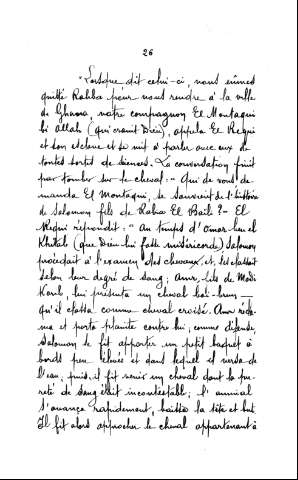 26
"Lorsque dit celui-ci, nous eûmes
quitté Rahba pour nous rendre à la ville
de Ghana, notre compagnon El Montaqui
bi Allah (qui craint Dieu), appela El Requi
et son esclave et se mit à parler avec eux de
toutes sortes de choses. La conversation finit
par tomber sur le cheval: - Qui de vous de-
manda El Montaqui, se souvient de l'histoire
de Salomon fils de Rabia El Baili? - El
Requi répondit: - "Au temps d'Omar ben el
Khitab (que Dieu lui fasse miséricorde) Salomon
procédait à l'examen des chevaux, et, les classait
selon leur degré de sang; Amr, fils de Madi
Karib, lui présenta un cheval bai-brun —
qu'il classa comme cheval croisé. Amr récla-
ma et porta plainte contre lui; comme défense,
Salomon se fit apporter un petit baquet à
bords peu élevés et dans lequel il versa de
l'eau, puis, il fit venir un cheval dont la pu-
reté de sang était incontestable; l'animal
s'avança rapidement, baissa la tête et but
Il fit alors approcher le cheval appartenant à